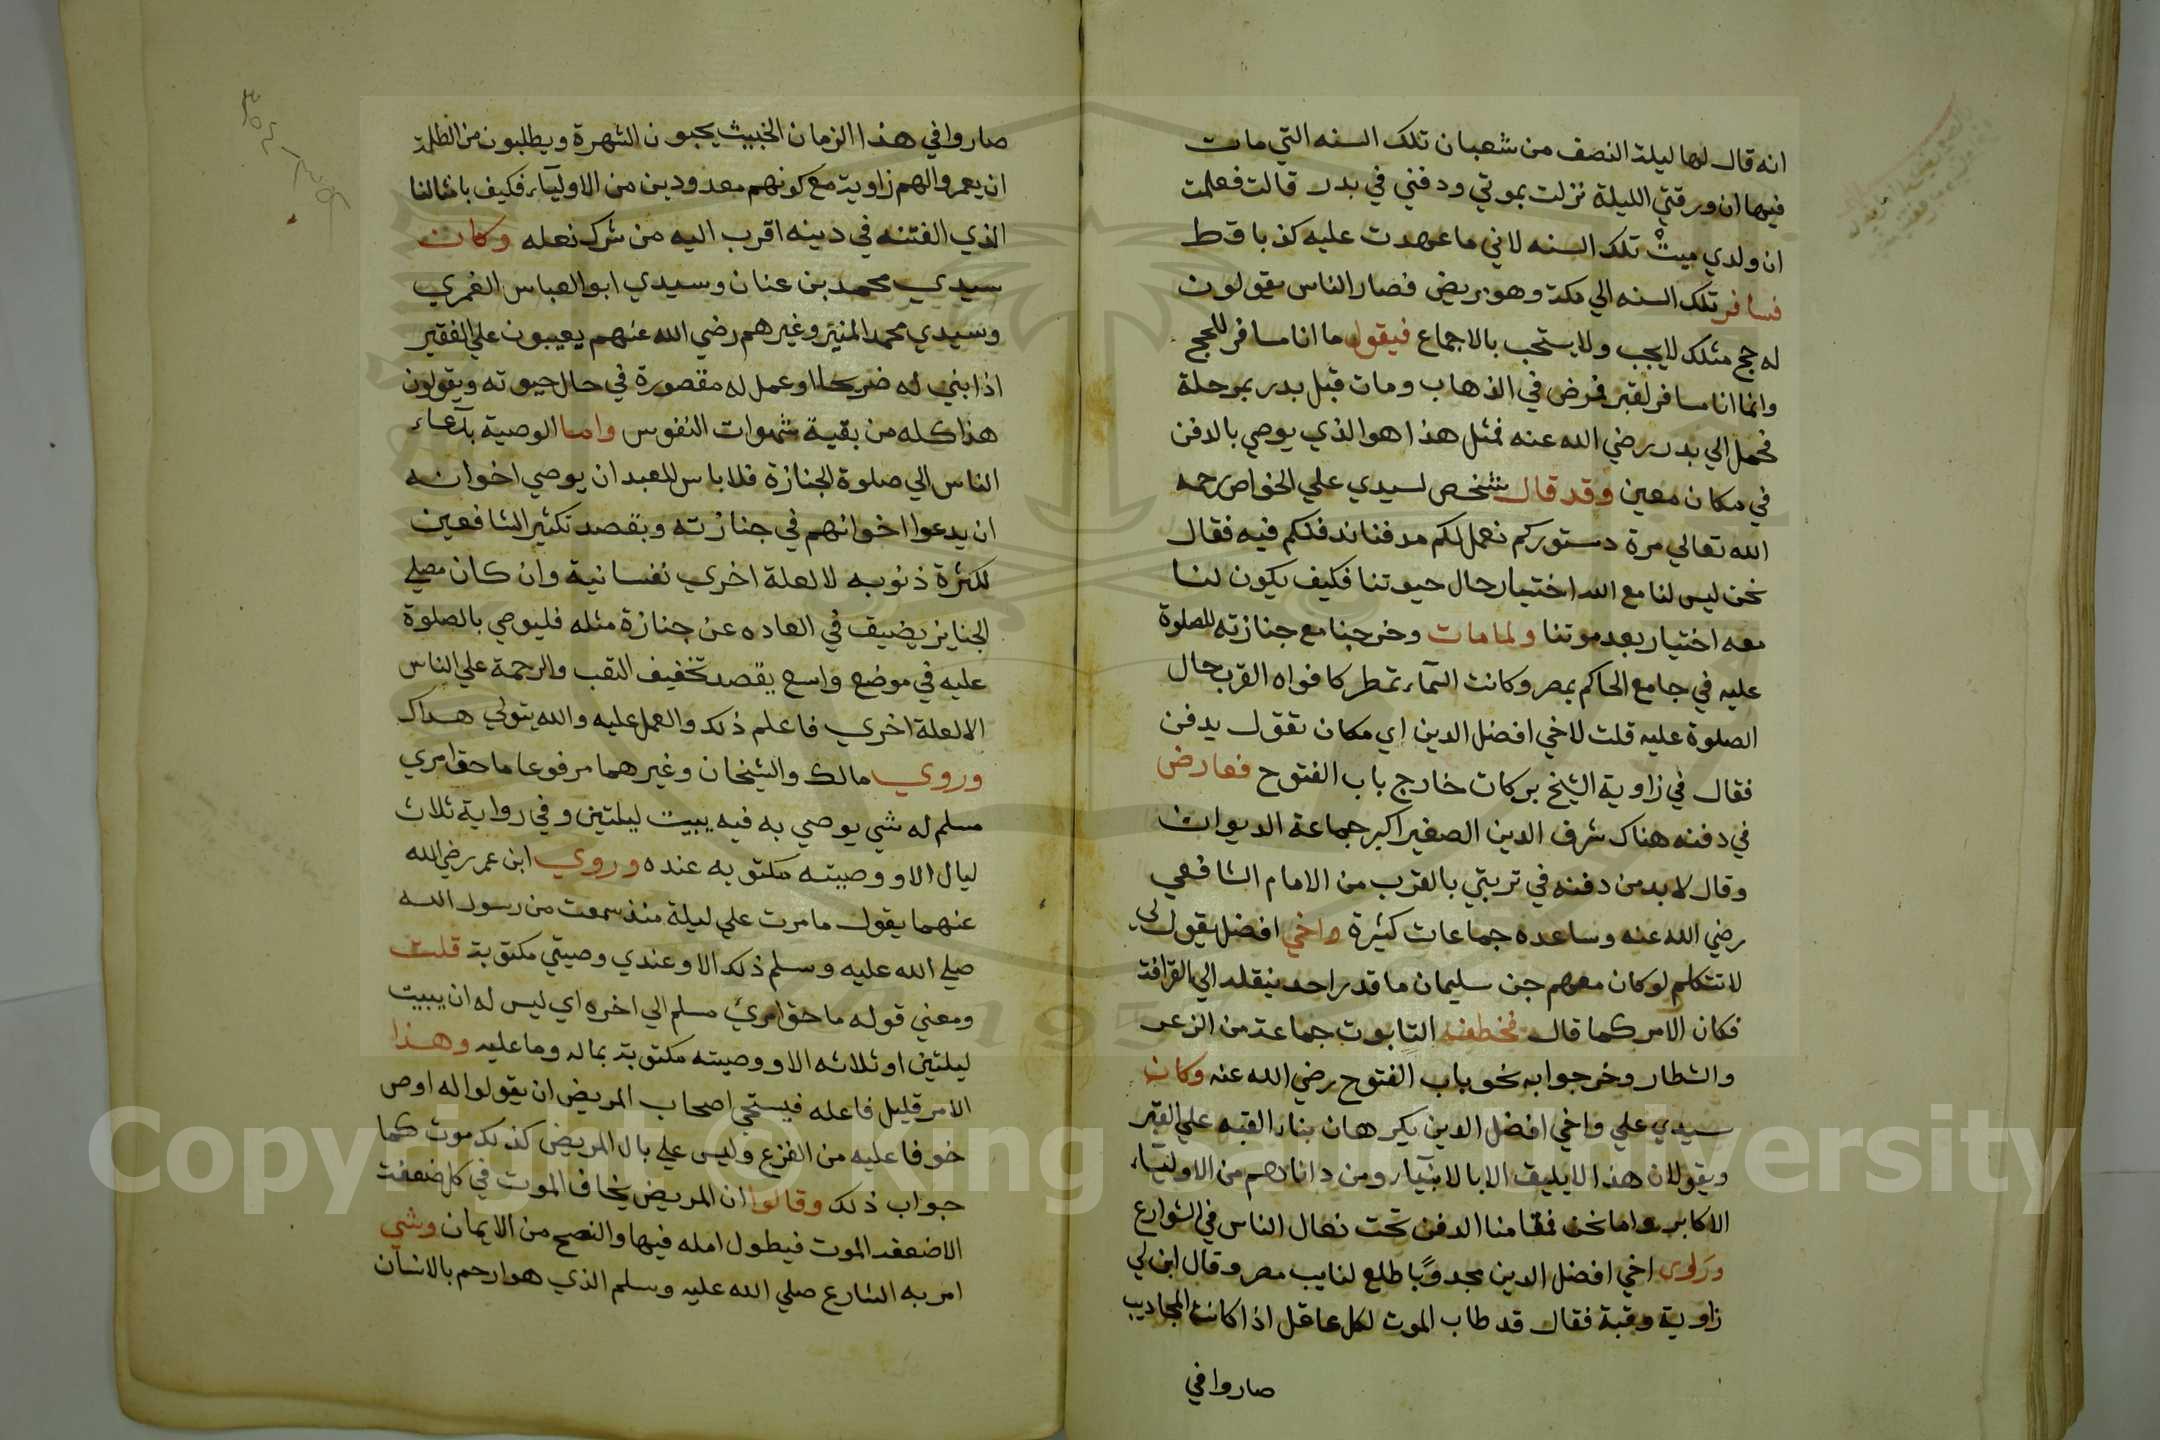 انه قال لها ليلة النصف من شعبان تلك السنه التي مات
فيها ان ورقتي الليلة نزلت بموتي ودفني في بدر قالت فعلمت
ان ولدي ميت تلك السنه لاني ما عهدت عليه كذبا قط
فسافر تلك السنه الي مكة وهو مريض فصار الناس يقولون
له حج مثلك لا يجب ولا يستحب بالاجماع فيقول ما انا مسافر للحج
وانما انا مسافر لقبر فمرض في الذهاب ومات قبل بدر بمرحلة
فحمل الي بدر رضي الله عنه فمثل هذا هو الذي يوصي بالدفن
في مكان معين وقد قال شخص لسيدي علي الخواص رحمه
الله تعالي مرة دستوركم نعمل لكم مدفنا ندفنكم فيه فقال
نحن ليس لنا مع الله اختيار حال حيوتنا فكيف يكون لنا
معه اختيار بعد موتنا ولما مات وخرجنا مع جنازته للصلوة
عليه في جامع الحاكم بمصر وكانت السمآء تمطر كافواه القرب حال
الصلوة عليه قلت لاخي افضل الدين اي مكان تقول يدفن
فقال في زاوية الشيخ بركات خارج باب الفتوح فعارض
في دفنه هناك شرف الدين الصغير اكبر جماعة الديوان
وقال لا بد من دفنه في تربتي بالقرب من الامام الشافعي
رضي الله عنه وساعده جماعات كثيرة واخي افضل يقول لي
لا تتكلم لو كان معهم جن سليمان ما قدر احد ينقله الي القرافة
فكان الامر كما قال فخطفه التابوت جماعة من الزعر
والشطار وخرجوا به نحو باب الفتوح رضي الله عنه وكان
سيدي علي واخي افضل الدين يكرهان بناء القبه علي القبر
ويقولان هذا لا يليق الا بالانبيآء ومن داناهم من الاوليآء
الاكابر واما نحن فمقامنا الدفن تحت نعال الناس في الشوارع
وراوي اخي افضل الدين مجذوبًا طلع لنايب مصر وقال ابن لي
زاوية وقبة فقال قد طاب الموت لكل عاقل اذا كانت المجاذيب
صاروا في
صاروا في هذا الزمان الخبيث يحبون الشهرة ويطلبون من الظلمة
ان يعمروا لهم زاوية مع كونهم معدودين من الاوليآء فكيف بامثالنا
الذي الفتنه في دينه اقرب اليه من شرك نعله وكان
سيدي محمد بن عنان وسيدي ابو العباس الغمري
وسيدي محمد المنير وغيرهم رضي الله عنهم يعيبون علي الفقير
اذا بني له ضريحا او عمل له مقصورة في حال حيوته ويقولون
هذا كله من بقية شهوات النفوس واما الوصية بدعاء
الناس الي صلوة الجنازة فلا باس للعبد ان يوصي اخوانه
ان يدعوا اخوانهم في جنازته وبقصد تكثير الشافعين
لكثرة ذنوبه لا لعلة اخري نفسانية وان كان مصلي
الجنايز يضيق في العاده عن جنازة مثله فليوصي بالصلوة
عليه في موضع واسع يقصد تخفيف التعب والرحمة علي الناس
الا لعلة اخري فاعلم ذلك والعمل عليه والله يتولي هداك
وروي مالك والشيخان وغيرهما مرفوعا ما حق امري
مسلم له شي يوصي به فيه يبيت ليلتين وفي رواية ثلاث
ليال الا ووصيته مكتوبه عنده وروي ابن عمر رضي الله
عنهما يقول ما مرت علي ليلة منذ سمعت من رسول الله
صلي الله عليه وسلم ذلك الا وعندي وصيتي مكتوبة قلت
ومعني قوله ما حق امري مسلم الي اخره اي ليس له ان يبيت
ليلتين او ثلاثه الا ووصيته مكتوبة بماله وما عليه وهذا
الامر قليل فاعله فيستحي اصحاب المريض ان يقولوا له اوص
خوفا عليه من الفزع وليس علي بال المريض كذلك موت كما
جواب ذلك وقالوا ان المريض يخاف الموت في كل ضعفة
الا ضعفة الموت فيطول امله فيها والنصح من الايمان وشي
امر به الشارع صلي الله عليه وسلم الذي هو ارحم بالانسان
Copyright © King Saud University